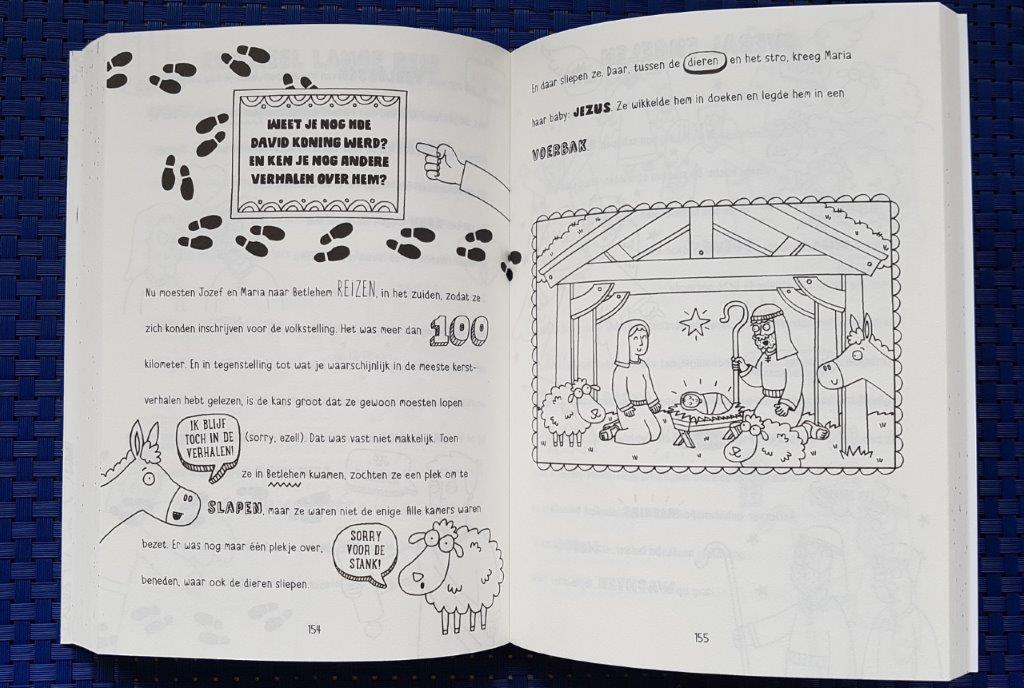 WEET JE NOG HOE
DAVID KONING WERD?
EN KEN JE NOG ANDERE
VERHALEN OVER HEM?
Nu moesten Jozef en Maria naar Betlehem REIZEN, in het zuiden, zodat ze
zich konden inschrijven voor de volkstelling. Het was meer dan 100
kilometer. En in tegenstelling tot wat je waarschijnlijk in de meeste kerst-
verhalen hebt gelezen, is de kans groot dat ze gewoon moesten lopen
IK BLIJF
TOCH IN DE
VERHALEN!
(sorry, ezel!). Dat was vast niet makkelijk. Toen
ze in Betlehem kwamen, zochten ze een plek om te
SLAPEN, maar ze waren niet de enige. Alle kamers waren
bezet. Er was nog maar één plekje over,
beneden, waar ook de dieren sliepen.
SORRY
VOOR DE
STANK!
154
En daar sliepen ze. Daar, tussen de dieren en het stro, kreeg Maria
haar baby: JEZUS. Ze wikkelde hem in doeken en legde hem in een
VOERBAK.
155